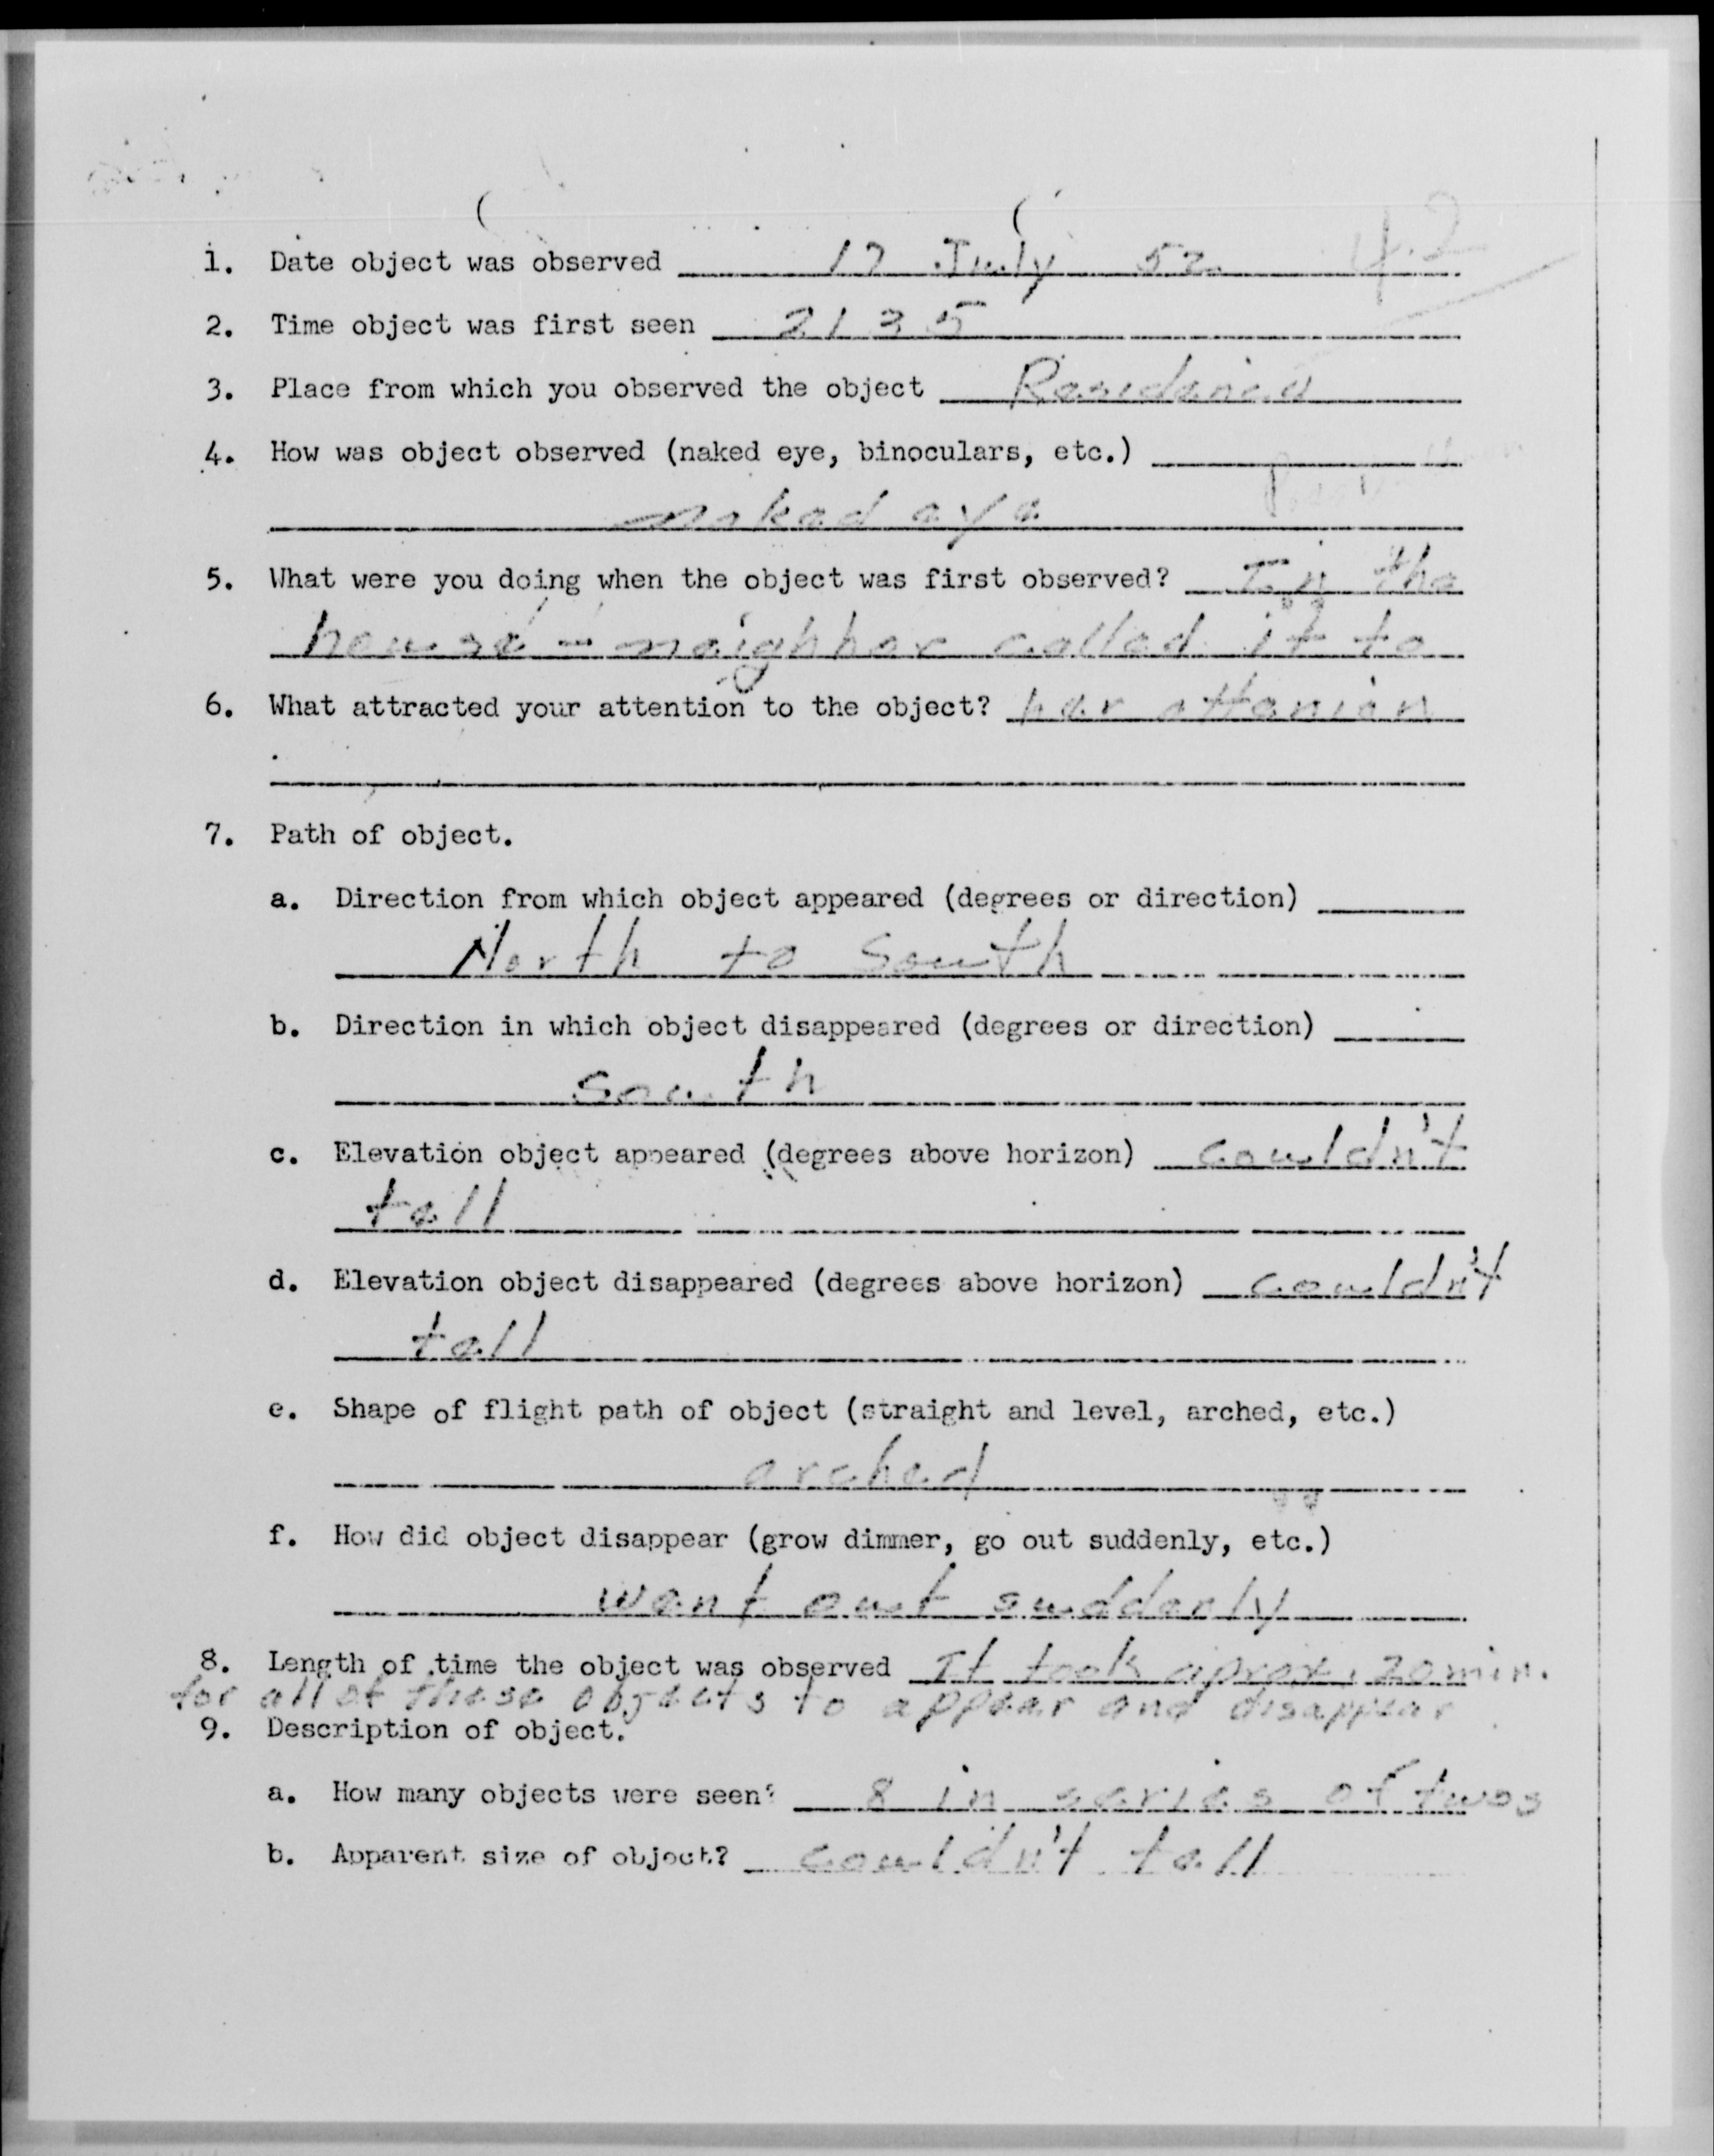 1. Date object was observed 17 July 52
2. Time object was first seen 2135
3. Place from which you observed the object Residence
4. How was object observed (naked eye, binoculars, etc.)
naked eye
5. What were you doing when the object was first observed? In the
house - neighbor called it to
6. What attracted your attention to the object? her attenion
7. Path of object.
a. Direction from which object appeared (degrees or direction)
North to South
b. Direction in which object disappeared (degrees or direction)
South
c. Elevation object appeared (degrees above horizon) couldn't
tell
d. Elevation object disappeared (degrees above horizon) couldn't
tell
e. Shape of flight path of object (straight and level, arched, etc.)
arched
f. How did object disappear (grow dimmer, go out suddenly, etc.)
went out suddenly
8. Length of time the object was observed It took aprox. 20 min.
for all of these objects to appear and disappear
9. Description of object.
a. How many objects were seen? 8 in series of twos
b. Apparent size of object? couldn't tell